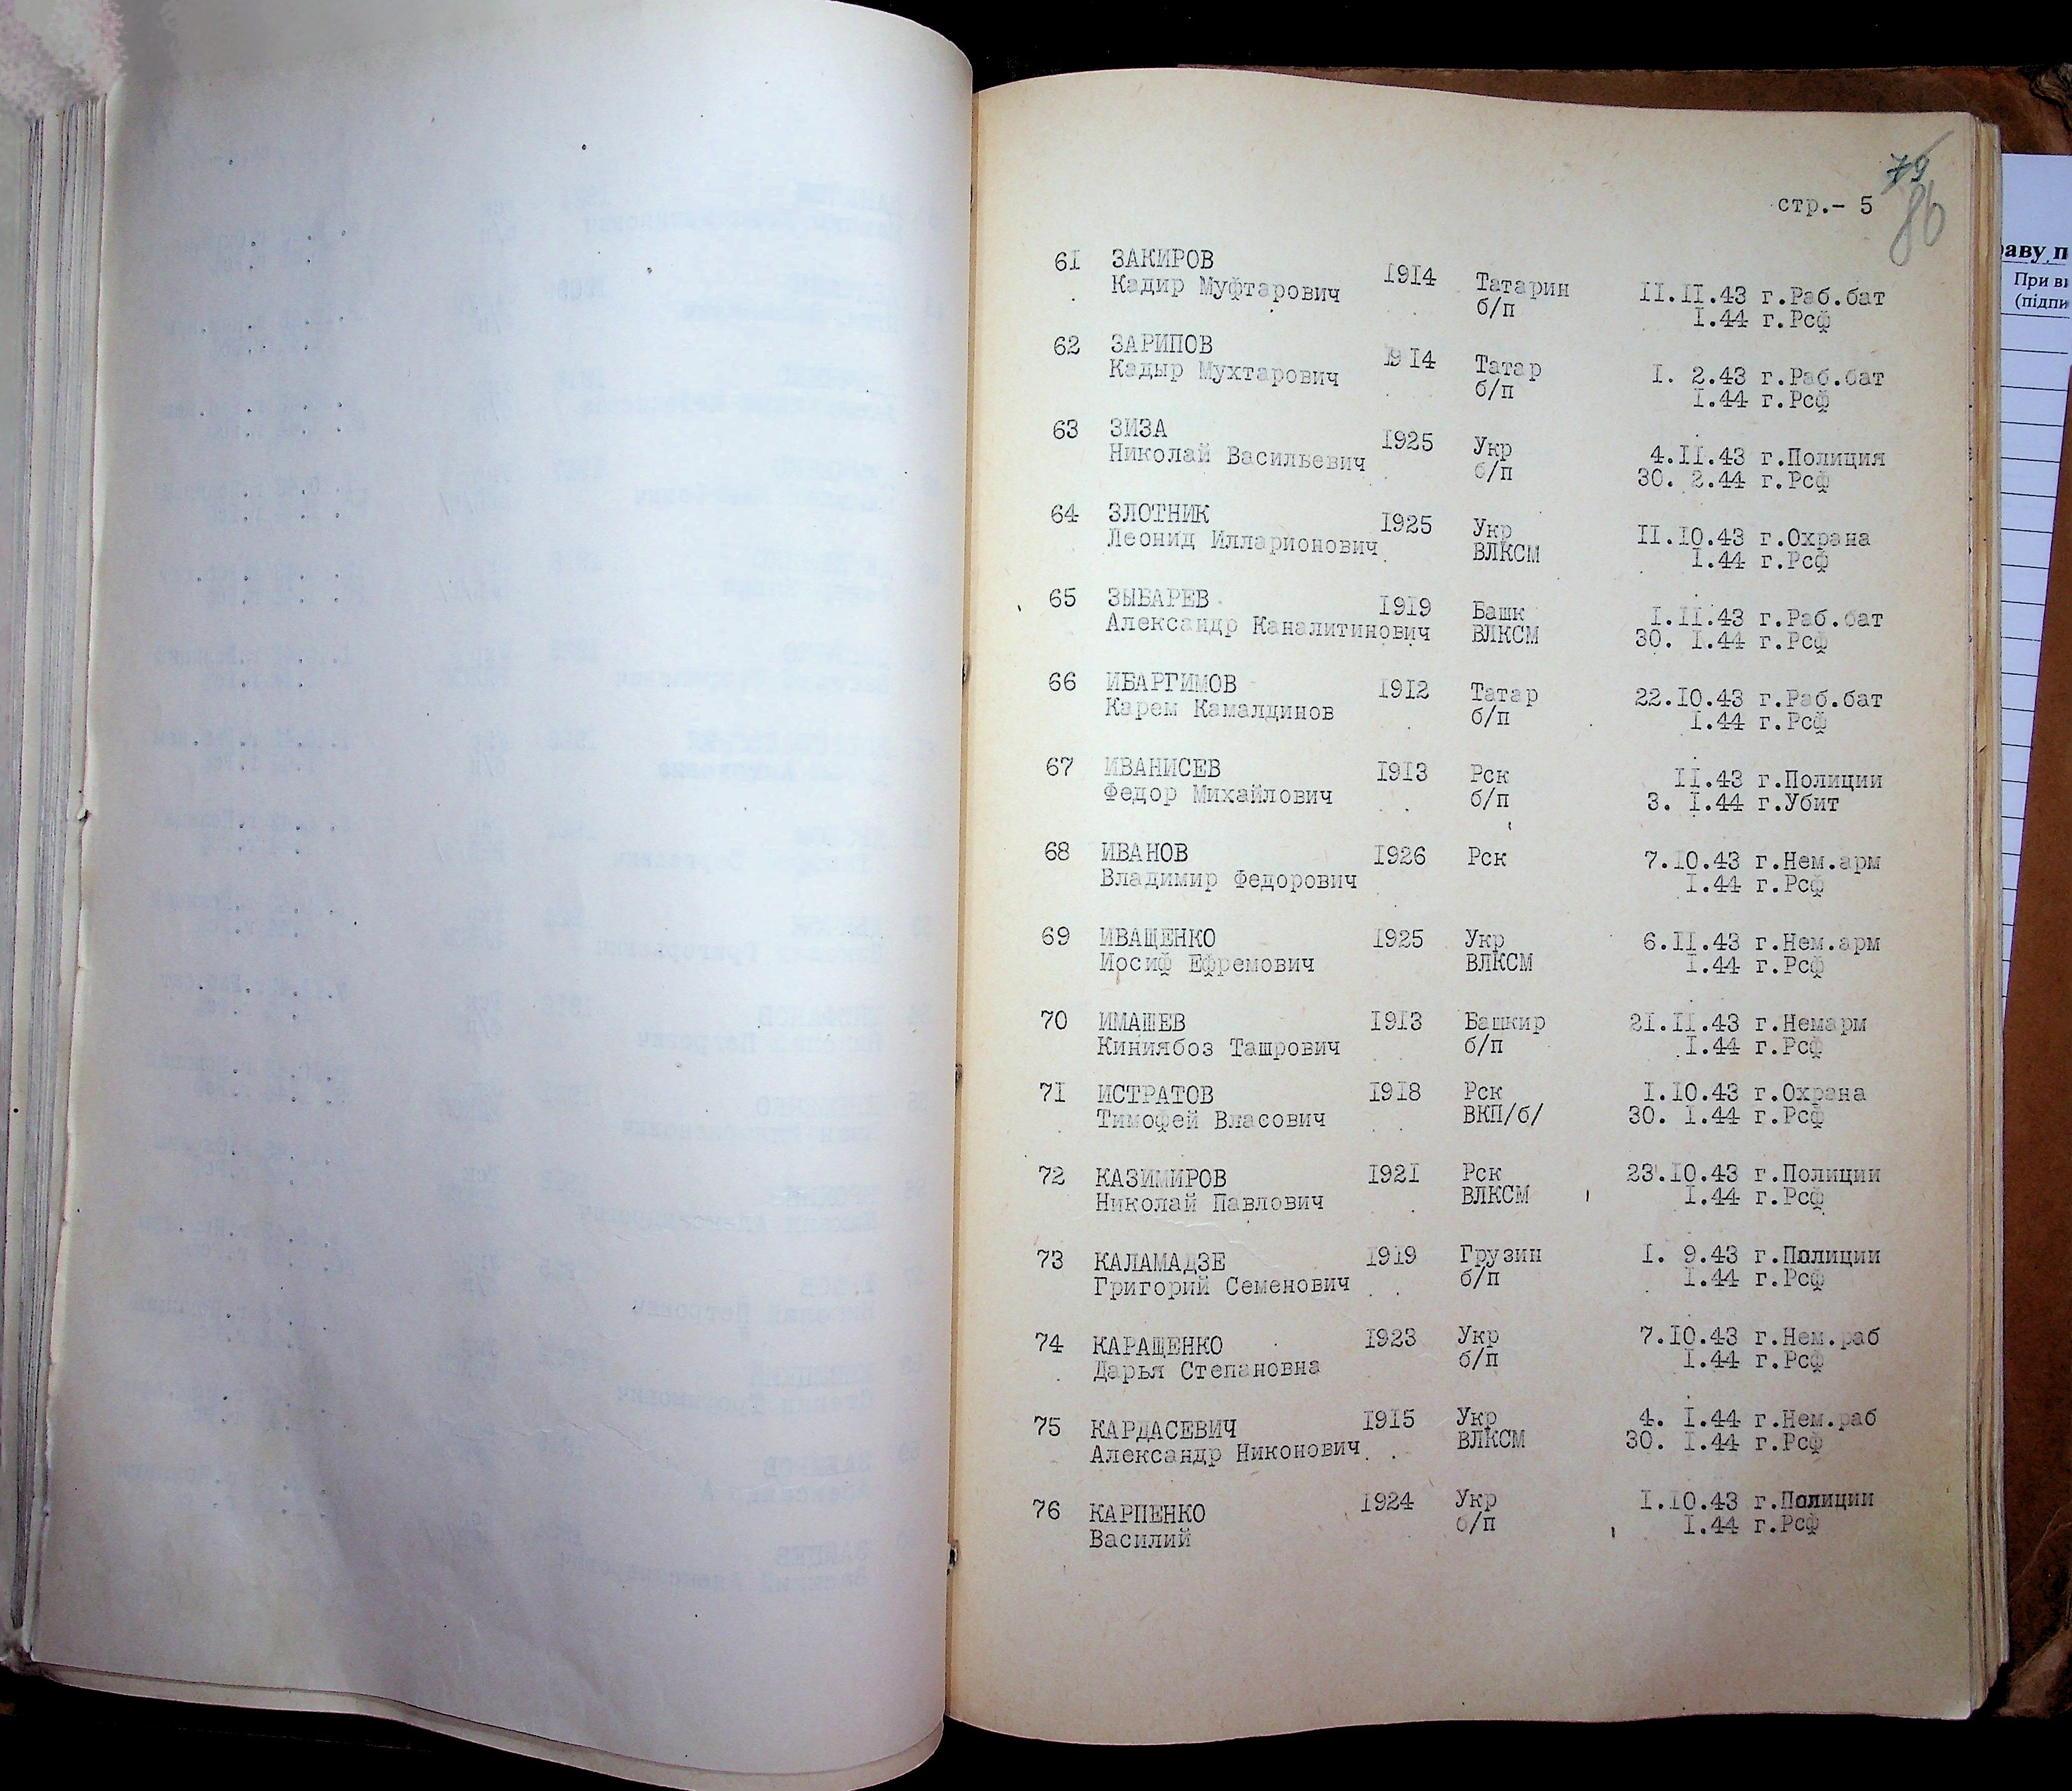 79
86
стр.- 5
61 ЗАКИРОВ 1914 Татарин II.II.43 г.Раб.бат
Кадир Муфтарович б/п I.44 г.Рсф
62 ЗАРИПОВ 1914 Татар I. 2.43 г.Раб.бат
Кадыр Мухтарович б/п I.44 г.Рсф
63 ЗИЗА 1925 Укр 4.II.43 г.Полиция
Николай Васильевич б/п 30. 2.44 г.Рсф
64 ЗЛОТНИК 1925 Укр II.IO.43 г.Охрана
Леонид Илларионович ВЛКСМ I.44 г.Рсф
65 ЗЫБАРЕВ 1919 Башк I.II.43 г.Раб.бат
Александр Каналитинович ВЛКСМ 30. I.44 г.Рсф
66 ИБАРГИМОВ 1912 Татар 22.IO.43 г.Раб.бат
Карем Камалдинов б/п I.44 г.Рсф
67 ИВАНИСЕВ 1913 Рск II.43 г.Полиции
Федор Михайлович б/п 3. I.44 г.Убит
68 ИВАНОВ 1926 Рск 7.IO.43 г.Нем.арм
Владимир Федорович I.44 г.Рсф
69 ИВАЩЕНКО 1925 Укр 6.II.43 г.Нем.арм
Иосиф Ефремович ВЛКСМ I.44 г.Рсф
70 ИМАШЕВ 1913 Башкир 21.II.43 г.Немарм
Киниябоз Ташрович б/п I.44 г.Рсф
71 ИСТРАТОВ 1918 Рск I.IO.43 г.Охрана
Тимофей Власович ВКП/б/ 30. I.44 г.Рсф
72 КАЗИМИРОВ 1921 Рск 23.IO.43 г.Полиции
Николай Павлович ВЛКСМ I.44 г.Рсф
73 КАЛАМАДЗЕ 1919 Грузин I. 9.43 г.Полиции
Григорий Семенович б/п I.44 г.Рсф
74 КАРАЩЕНКО 1923 Укр 7.IO.43 г.Нем.раб
Дарья Степановна б/п I.44 г.Рсф
75 КАРДАСЕВИЧ 1915 Укр 4. I.44 г.Нем.раб
Александр Никонович ВЛКСМ 30. I.44 г.Рсф
76 КАРПЕНКО 1924 Укр I.IO.43 г.Полиции
Василий б/п I.44 г.Рсф
При